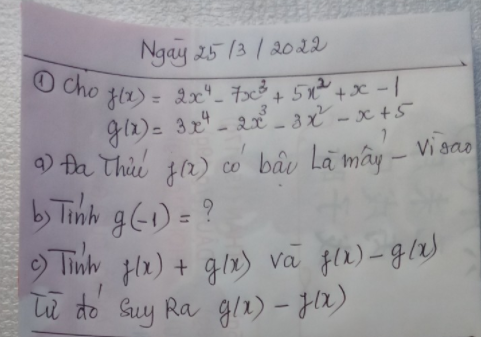 Ngày 25/3/2022
① Cho f(x) = 2x⁴ - 7x³ + 5x² + x - 1
g(x) = 3x⁴ - 2x³ - 3x² - x + 5
a) Đa thức f(x) có bậc là mấy? - Vì sao
b) Tính g(-1) = ?
c) Tính f(x) + g(x) và f(x) - g(x)
Từ đó Suy Ra g(x) - f(x)